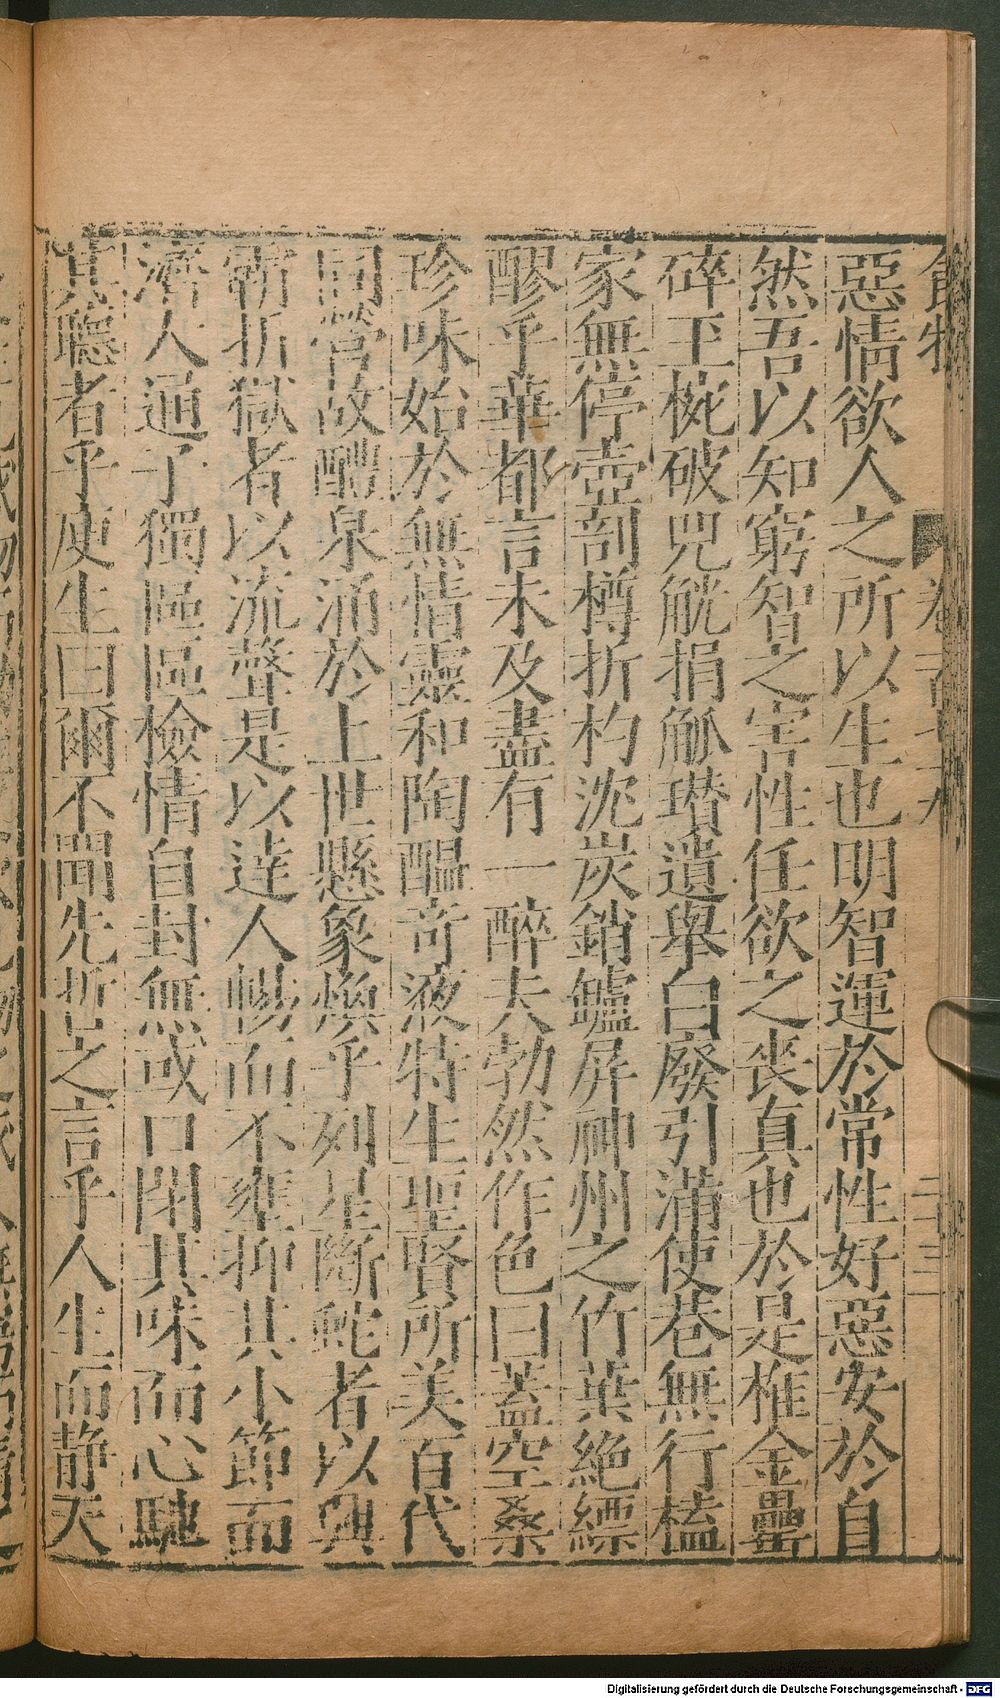 惡情欲人之所以生也明智運於常性好惡安於自
然吾以知窮智之害性任欲之喪真也於是椎金罍
碎玉椀破兕觥捐觚瓚遺舉白廢引滿使巷無行榼
家無停壺剖樽折杓沈炭銷鑪屏神州之竹葉絶縹
醪乎華都言未及盡有一醉夫勃然作色曰蓋空桑
珍味始於無情靈和陶醖竒液特生聖賢所美百代
同營故醴泉涌於上世懸象煥乎列星斷蛇者以興
霸折獄者以流聲是以逹人暢而不壅抑其小節而
濟人通了獨區區檢情自封無或口閉其味而心馳
其聽者乎庾生曰爾不聞先哲之言乎人生而静天
二十三
Digitalisierung gefördert durch die Deutsche Forschungsgemeinschaft - DFG